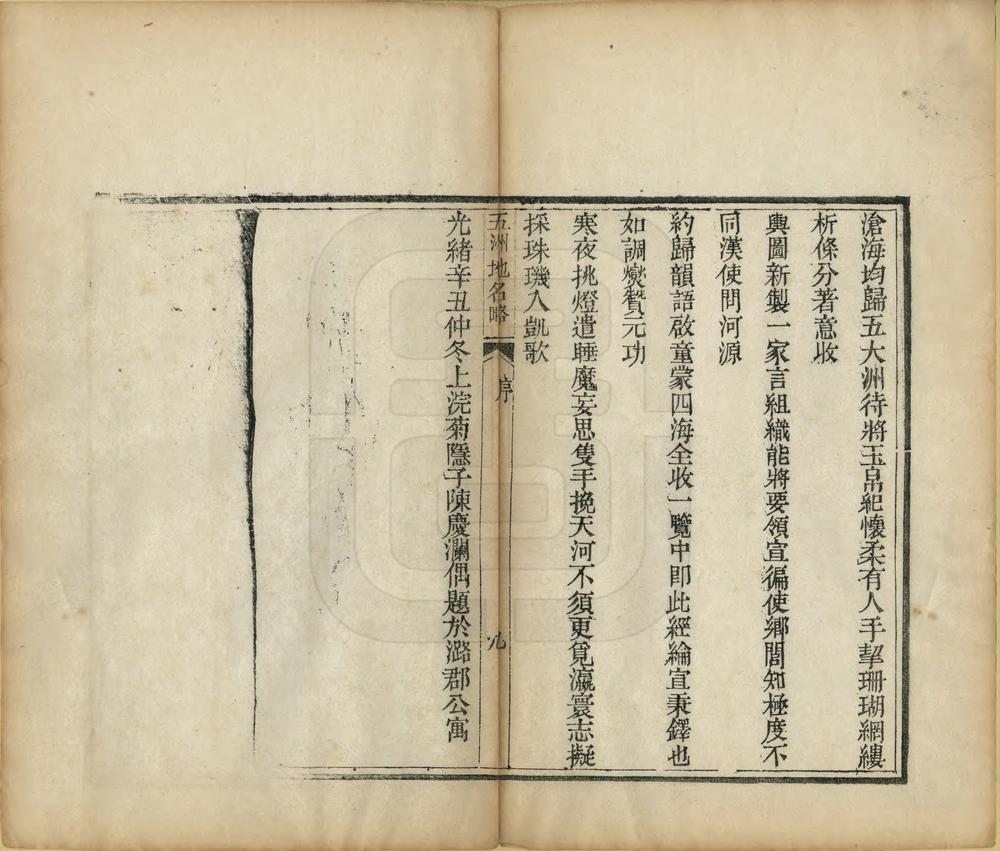 滄海均歸五大洲待將玉帛紀懷柔有人手挈珊瑚網縷
析條分著意收
輿圖新製一家言組織能將要領宣徧使鄉閭知極度不
同漢使問河源
約歸韻語啟童蒙四海全收一覽中即此經綸宜秉鐸也
如調燮贊元功
寒夜挑燈遣睡魔妄思隻手挽天河不須更覓瀛寰志擬
採珠璣入凱歌
五洲地名略 序 九
光緒辛丑仲冬上浣菊隱子陳慶瀾偶題於潞郡公寓